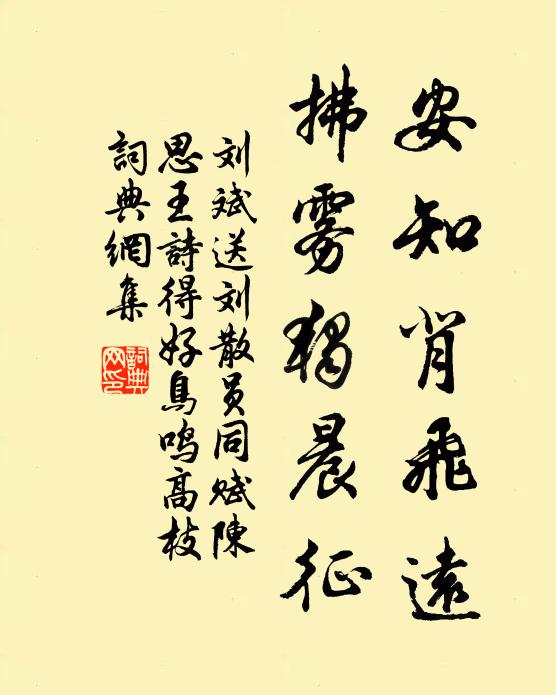 安知背飛遠
拂雾獨晨征
刘斌送刘散员同赋陳
思王詩得好鳥鸣高枝
詞典網集
詞典網印